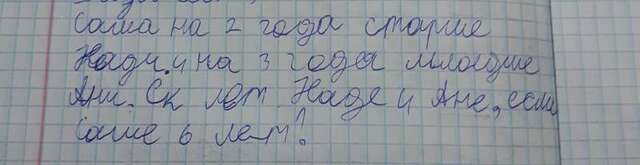 Саша на 2 года старше
Нади и на 3 года младше
Ани. Ск лет Наде и Ане, если
Саше 6 лет?